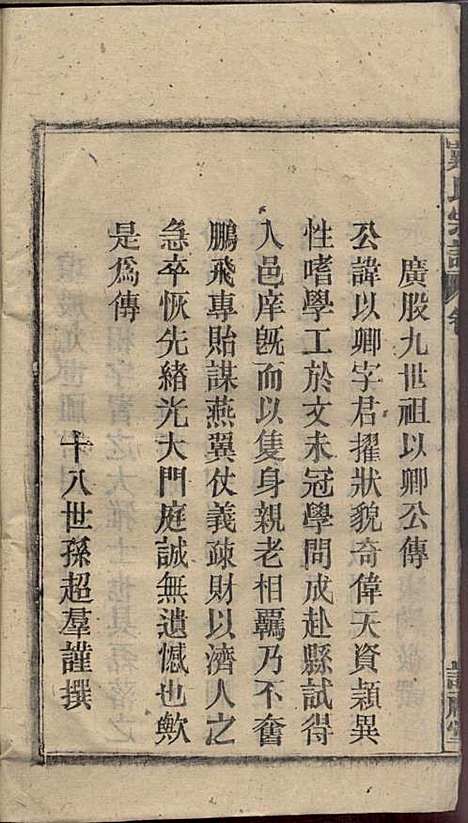 廣股九世祖以卿公傳
公諱以卿字君擢狀貌奇偉天資穎異
性嗜學工於文未冠學問成赴縣試得
入邑庠旣而以隻身親老相羈乃不奮
鵬飛專貽謀燕翼仗義疎財以濟人之
急卒恢先緒光大門庭誠無遺憾也歟
是爲傳
十八世孫超羣謹撰